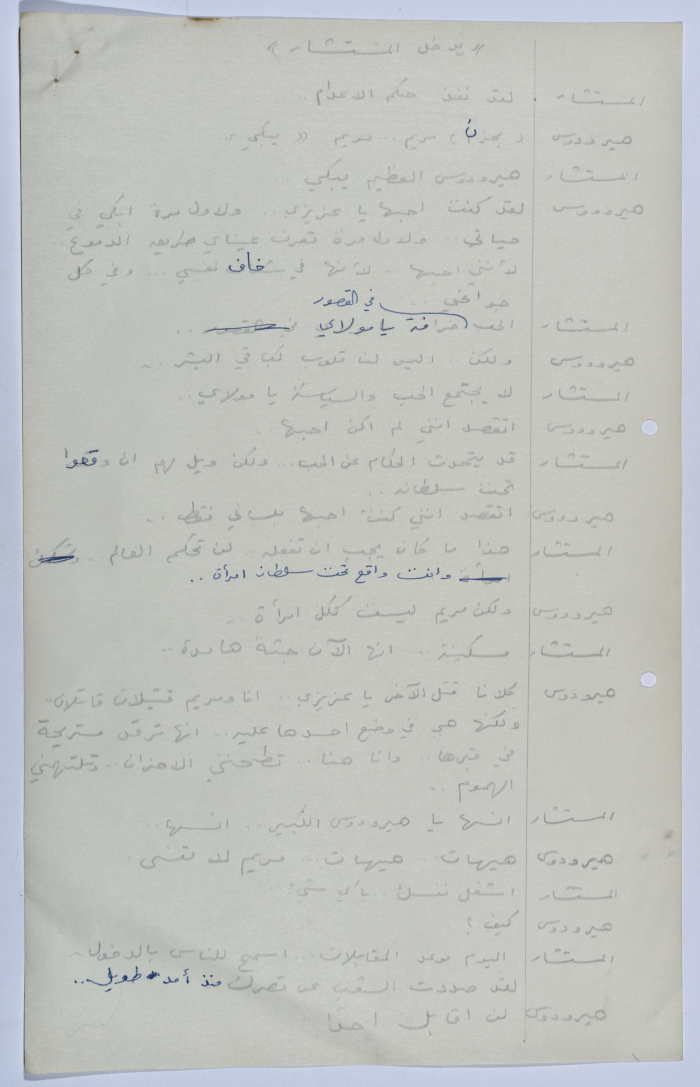 « يدخل المستشار »
المستشار . لقد نفذ حكم الاعدام ..
هيرودوس ( بحزن ) مريم ... مريم « يبكي » .
المستشار هيرودوس العظيم يبكي ..
هيرودوس لقد كنت احبها يا عزيزي .. ولاول مرة ابكي في
حياتي .. ولاول مرة تعرف عيناي طريق الدموع ..
لأنني احبها .. لأنها في شغاف نفسي ... وفي كل
جوانحي ..
في القصور
المستشار الحب خرافة يا مولاي ..
هيرودوس ولكن .. اليس لنا قلوب كباقي البشر ..
المستشار لا يجتمع الحب والسياسة يا مولاي ..
هيرودوس اتقصد انني لم اكن احبها ..
المستشار قد يتحدث الحكام عن الحب ... ولكن ويل لهم ان وقعوا
تحت سلطانه ..
هيرودوس اتقصد انني كنت احبها بلساني فقط ..
المستشار هذا ما كان يجب ان تفعله .. لن تحكم العالم ..
وانت واقع تحت سلطان امرأة ..
هيرودوس ولكن مريم ليست ككل امرأة ..
المستشار مسكينة .. انها الآن جثة هامدة ..
هيرودوس كلانا قتل الآخر يا عزيزي .. انا ومريم قتيلان قاتلان ..
ولكنها هي في وضع احسدها عليه .. انها ترقد مستريحة
في قبرها .. وانا هنا .. تطحنني الاحزان .. وتلتهمني
الهموم ..
المستشار انسها يا هيرودوس الكبير .. انسها ..
هيرودوس هيهات .. هيهات ... مريم لا تنسى .
المستشار اشغل نفسك .. بأي شيء ..
هيرودوس كيف !
المستشار اليوم موعد المقابلات .. اسمح للناس بالدخول ..
لقد صددت الشعب عن قصرك منذ أمد طويل ..
هيرودوس لن اقابل احدا ..